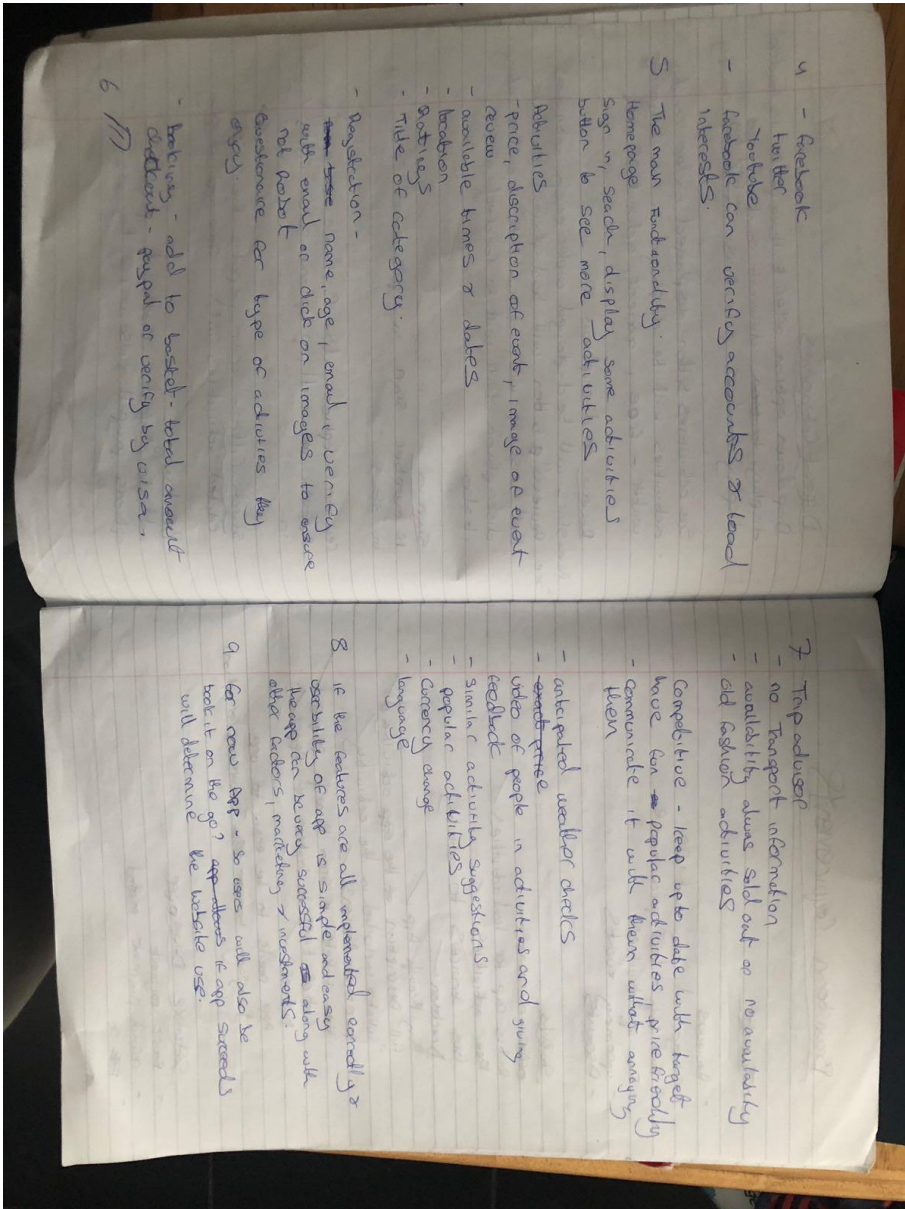 4 - facebook
twitter
Youtube
- facebook can verify accounts & load
interests.
5 The main Functionality:
Homepage
Sign in, seach, display some activities
button to see more activities
Activities
- price, discription of event, image of event
review
- available times & dates
- location
- Ratings
- Title of category.
- Registration -
name, age, email, verify
with email or click on images to ensure
not Robot
Questionaire for type of activities they
enjoy.
- Booking - add to basket - total amount
checkout - paypal or verify by visa.
6
7 Trip advisor
- no Transport information
- availability always sold out or no availability
- old fashion activities
Competitive - keep up to date with target
have fun popular activities, price friendly
- communicate it with them without annoying
them
- anticipated weather checks
- exact price
video of people in activities and giving
feedback
- similar activity suggestions
- popular activities
- currency change
- language
8 if the features are all implemented correctly &
usability of app is simple and easy
the app can be very successful along with
other factors, marketing & investments.
9. for now App - so users will also be
book it on the go? if app succeeds
will determine the website use.